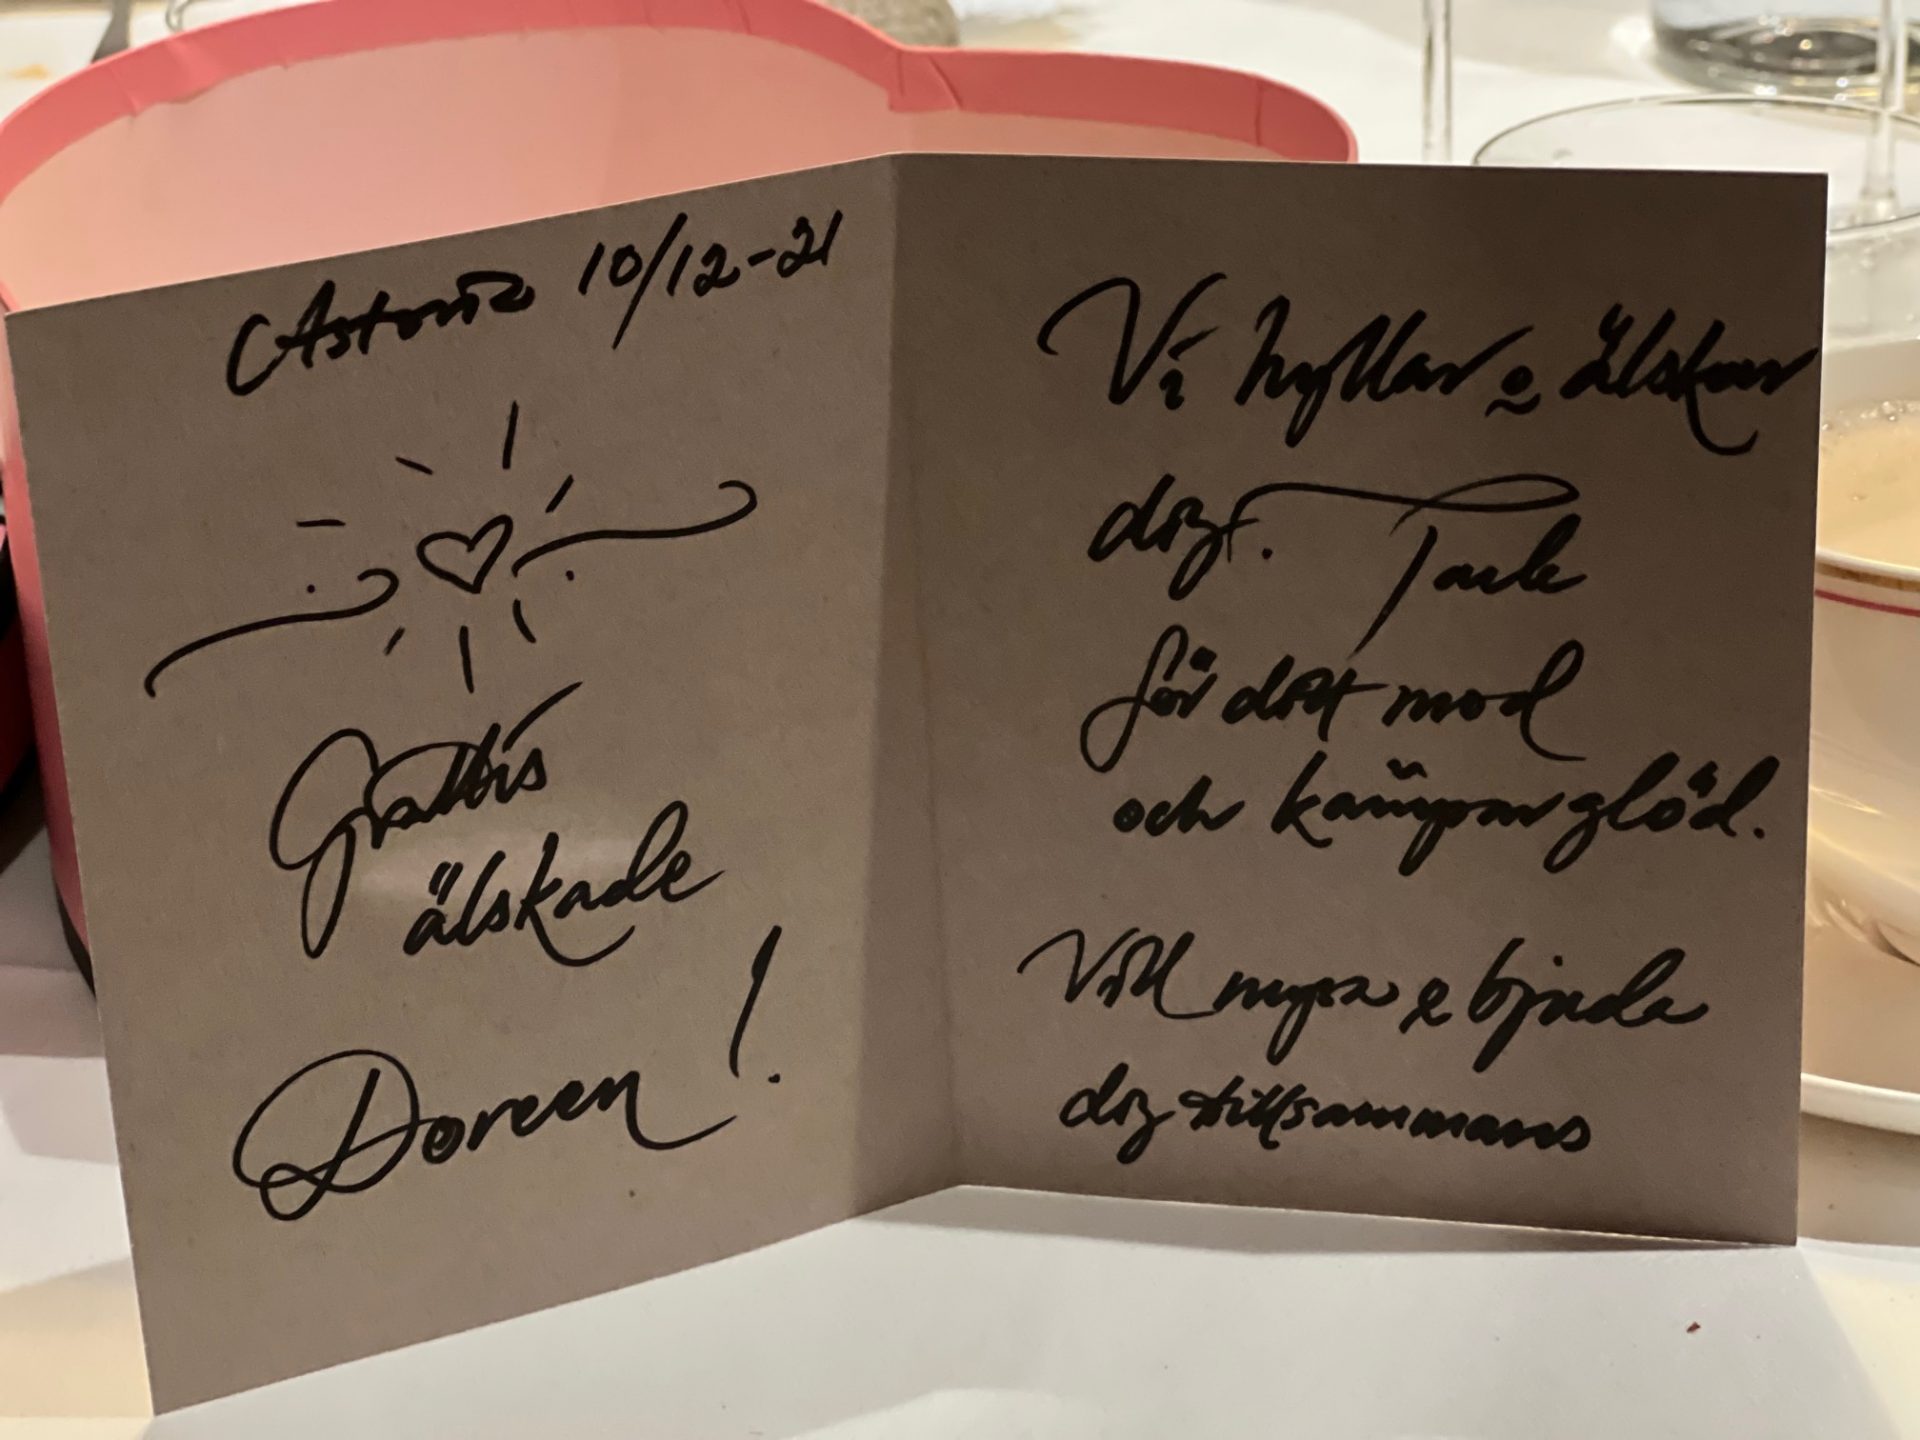 Astoria 10/12-21
Grattis
älskade
Doreen!
Vi hyllar o älskar
dig. Tack
för ditt mod
och kämparglöd.
Vill mysa & bjuda
dig tillsammans